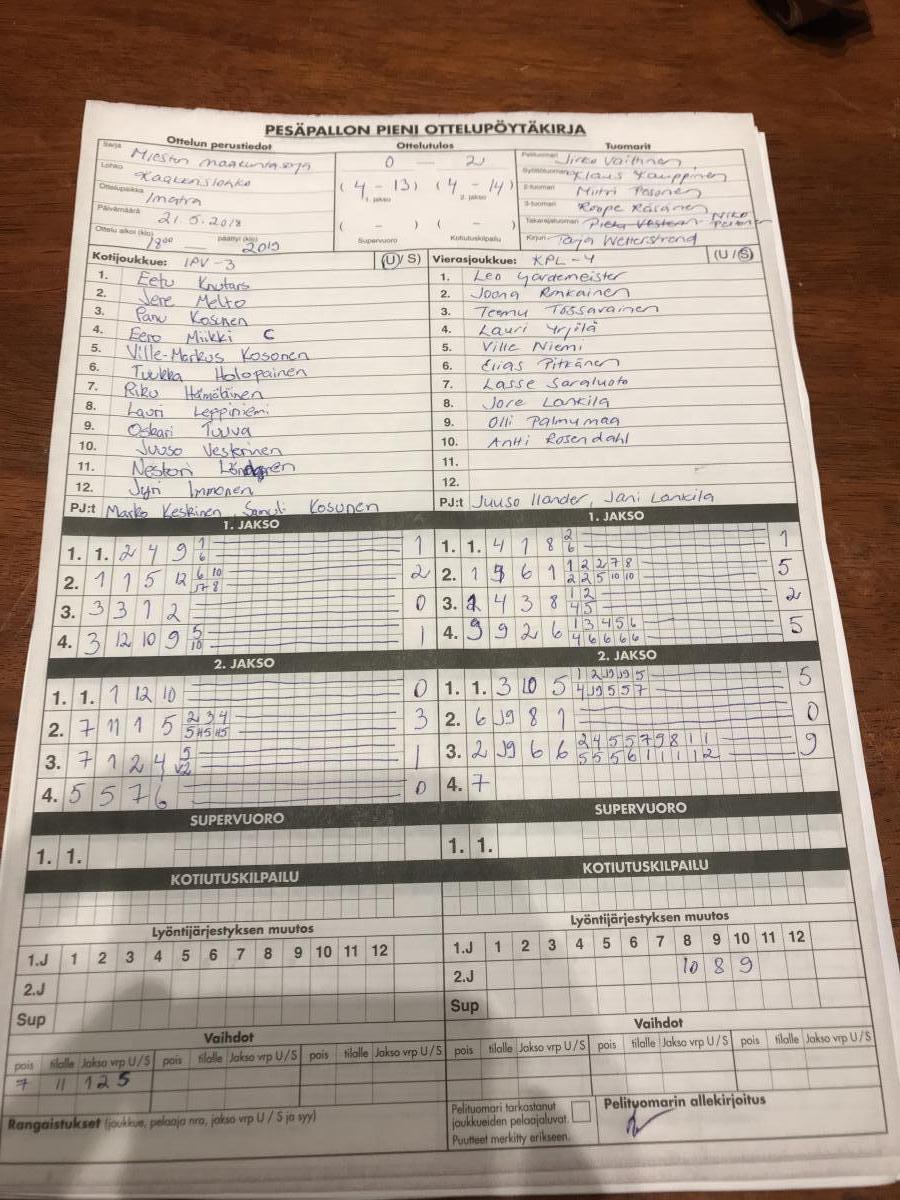 PESÄPALLON PIENI OTTELUPÖYTÄKIRJA
Ottelun perustiedot Ottelutulos Tuomarit
Sarja Miesten maakuntasarja 0 — 2 Pelituomari
Lohko Kaakkoislohko Syöttötuomari Klaus Kauppinen
Ottelupaikka Imatra (4 - 13) (4 - 14) 2-tuomari Miitri Pesonen
1. jakso 2. jakso
Päivämäärä 21.5.2018 3-tuomari Roope Räsänen
( - ) ( - ) Takarajatuomari Niko
Ottelu alkoi (klo) 1800 — päättyi (klo) 2019 Supervuoro Kotiutuskilpailu Kirjuri Tarja Wetterstrand
Kotijoukkue: IPV-3 (U/S) Vierasjoukkue: KPL-4 (U/S)
1. Eetu Knutars 1. Leo Gardemeister
2. Jere Melto 2. Joona Ronkainen
3. Panu Kosunen 3. Teemu Tossavainen
4. Eero Miikki C 4. Lauri Yrjilä
5. Ville-Markus Kosonen 5. Ville Niemi
6. Tuukka Holopainen 6. Elias Pitkänen
7. Riku Hämäläinen 7. Lasse Saraluoto
8. Lauri Leppiniemi 8. Jore Lankila
9. Oskari Tuuva 9. Olli Palmumaa
10. Juuso Veskinen 10. Antti Rosendahl
11. Nestori 11.
12. Jyri Immonen 12.
PJ:t Marko Keskinen, Samuli Kosunen PJ:t Juuso Ilander, Jani Lankila
1. JAKSO 1. JAKSO
1. 1. 2 4 9 1 1. 1. 4 1 8 1
6 2 6
2. 1 1 5 12 6 10 2 2. 1 6 1 1 2 2 7 8 5
7 8 2 2 5 10 10
3. 3 3 1 2 0 3. 4 3 8 1 2 2
4 5
4. 3 12 10 9 5 1 4. 9 9 2 6 1 3 4 5 6 5
10 4 6 6 6 6
2. JAKSO 2. JAKSO
1. 1. 1 12 10 0 1. 1. 3 10 5 5
2. 7 11 1 5 2 3 4 3 2. 6 8 1 0
3. 7 1 2 4 1 3. 2 6 6 2 4 5 5 7 9 8 1 1 9
5 5 5 6 1 1 1 1 2
4. 5 5 7 6 0 4. 7
SUPERVUORO SUPERVUORO
1. 1. 1. 1.
KOTIUTUSKILPAILU KOTIUTUSKILPAILU
Lyöntijärjestyksen muutos Lyöntijärjestyksen muutos
1.J 1 2 3 4 5 6 7 8 9 10 11 12 1.J 1 2 3 4 5 6 7 8 9 10 11 12
2.J 2.J 10 8 9
Sup Sup
Vaihdot Vaihdot
pois tilalle Jakso vrp U/S pois tilalle Jakso vrp U/S pois tilalle Jakso vrp U/S pois tilalle Jakso vrp U/S pois tilalle Jakso vrp U/S pois tilalle Jakso vrp U/S
7 11 1 2 S
Rangaistukset (joukkue, pelaaja nro, jakso vrp U / S ja syy) Pelituomari tarkastanut joukkueiden pelaajaluvat. Puutteet merkitty erikseen. Pelituomarin allekirjoitus